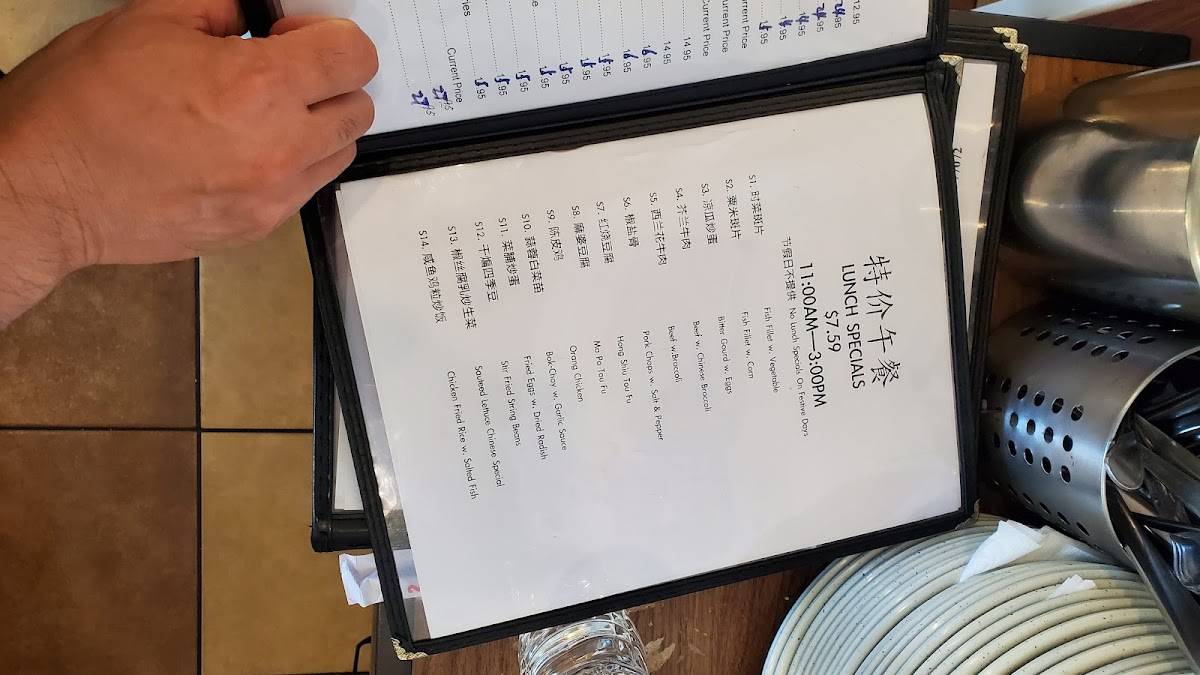 特价午餐
LUNCH SPECIALS
$7.59
11:00AM—3:00PM
节假日不提供 No Lunch Specials On Festive Days
S1. 时菜斑片 Fish Fillet w. Vegetable
S2. 粟米斑片 Fish Fillet w. Corn
S3. 凉瓜炒蛋 Bitter Gourd w. Eggs
S4. 芥兰牛肉 Beef w. Chinese Broccoli
S5. 西兰花牛肉 Beef w.Broccoli
S6. 椒盐骨 Pork Chops w. Salt & Pepper
S7. 红烧豆腐 Hong Shiu Tou Fu
S8. 麻婆豆腐 Ma Po Tou Fu
S9. 陈皮鸡 Orang Chicken
S10. 蒜蓉白菜苗 Bok-Choy w. Garlic Sauce
S11. 菜脯炒蛋 Fried Eggs w. Dried Radish
S12. 干煸四季豆 Stir Fried String Beans
S13. 椒丝腐乳炒生菜 Sauteed Lettuce Chinese Special
S14. 咸鱼鸡粒炒饭 Chicken Fried Rice w. Salted Fish
12.95
Current Price
Current Price
14.95
14.95
16.95
16.95
15.95
15.95
15.95
15.95
15.95
15.95
Current Price
27.95
27.95